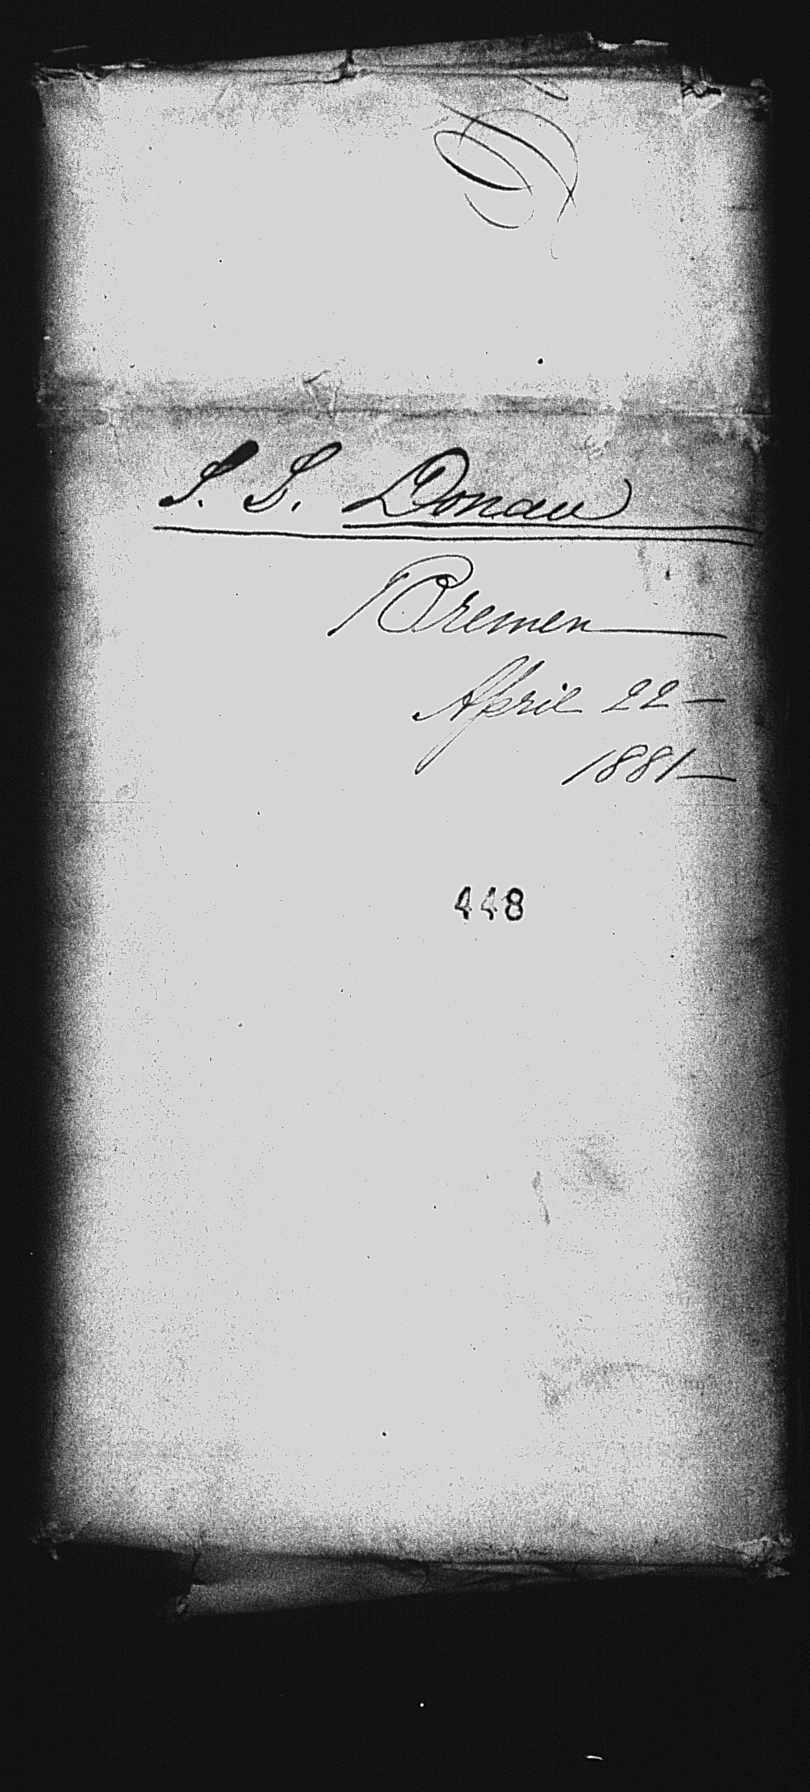 S. S. Donau
Bremen
April 22
1881
448